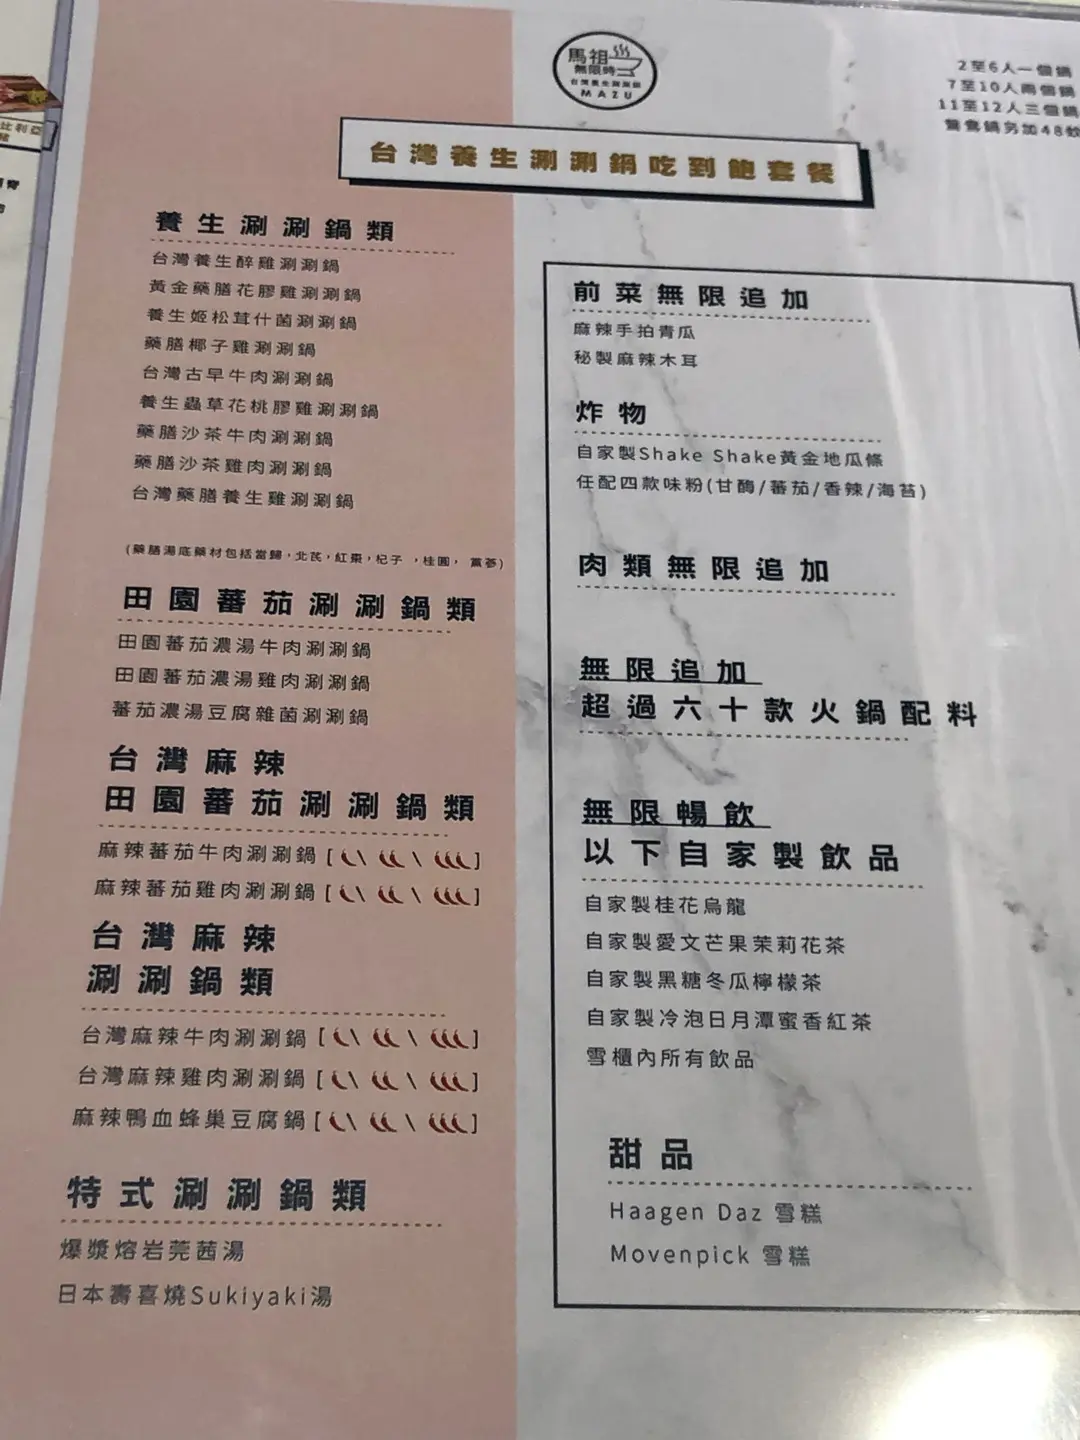 馬祖
無限時
MAZU
2至6人一個鍋
7至10人兩個鍋
11至12人三個鍋
鴛鴦鍋另加48
比利亞
台灣養生涮涮鍋吃到飽套餐
養生涮涮鍋類
台灣養生醉雞涮涮鍋
黃金藥膳花膠雞涮涮鍋
養生姬松茸什菌涮涮鍋
藥膳椰子雞涮涮鍋
台灣古早牛肉涮涮鍋
養生蟲草花桃膠雞涮涮鍋
藥膳沙茶牛肉涮涮鍋
藥膳沙茶雞肉涮涮鍋
台灣藥膳養生雞涮涮鍋
(藥膳湯底藥材包括當歸，北芪，紅棗，杞子，桂圓，黨蔘)
田園蕃茄涮涮鍋類
田園蕃茄濃湯牛肉涮涮鍋
田園蕃茄濃湯雞肉涮涮鍋
蕃茄濃湯豆腐雜菌涮涮鍋
台灣麻辣
田園蕃茄涮涮鍋類
麻辣蕃茄牛肉涮涮鍋[ \ \ ]
麻辣蕃茄雞肉涮涮鍋[ \ \ ]
台灣麻辣
涮涮鍋類
台灣麻辣牛肉涮涮鍋[ \ \ ]
台灣麻辣雞肉涮涮鍋[ \ \ ]
麻辣鴨血蜂巢豆腐鍋[ \ \ ]
特式涮涮鍋類
爆漿熔岩莞茜湯
日本壽喜燒Sukiyaki湯
前菜無限追加
麻辣手拍青瓜
秘製麻辣木耳
炸物
自家製Shake Shake黃金地瓜條
任配四款味粉(甘酶/蕃茄/香辣/海苔)
肉類無限追加
無限追加
超過六十款火鍋配料
無限暢飲
以下自家製飲品
自家製桂花烏龍
自家製愛文芒果茉莉花茶
自家製黑糖冬瓜檸檬茶
自家製冷泡日月潭蜜香紅茶
雪櫃內所有飲品
甜品
Haagen Daz 雪糕
Movenpick 雪糕